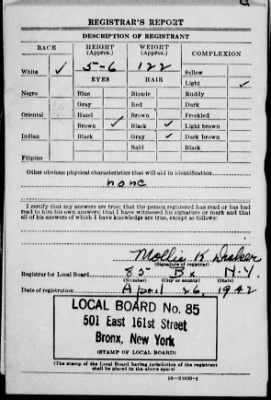 REGISTRAR'S REPORT
DESCRIPTION OF REGISTRANT
RACE HEIGHT (Approx.) WEIGHT (Approx.) COMPLEXION
White ✓ 5-6 122 Sallow
EYES HAIR Light ✓
Negro Blue Blonde Ruddy
Gray Red Dark
Oriental Hazel Brown Freckled
Brown ✓ Black ✓ Light brown
Indian Black Gray ✓ Dark brown
Bald Black
Filipino
Other obvious physical characteristics that will aid in identification
none
I certify that my answers are true; that the person registered has read or has had
read to him his own answers; that I have witnessed his signature or mark and that
all of his answers of which I have knowledge are true, except as follows:
Mollie K
(Signature of registrar)
Registrar for Local Board 85 Bx N.Y.
(Number) (City or county) (State)
Date of registration April 26, 1942
LOCAL BOARD No. 85
501 East 161st Street
Bronx, New York
(STAMP OF LOCAL BOARD)
(The stamp of the Local Board having jurisdiction of the registrant
shall be placed in the above space)